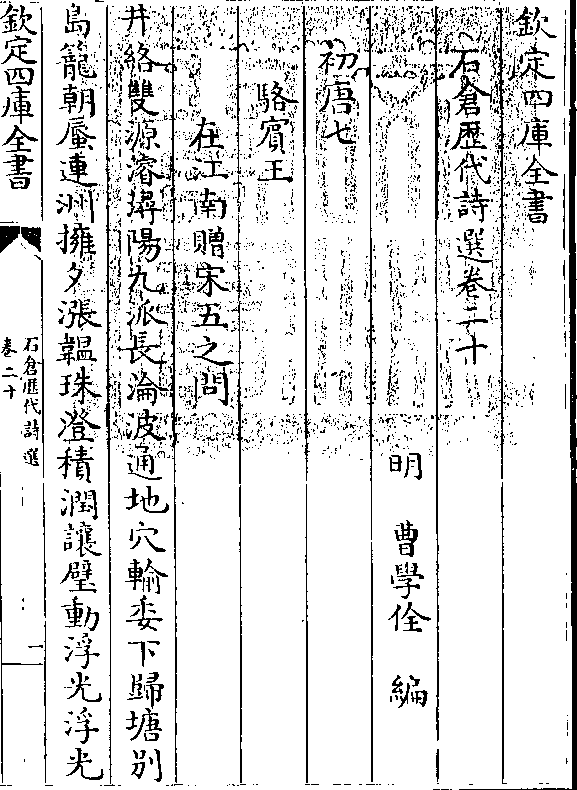 欽定四庫全書
石倉歴代詩選卷二十
明　曹學佺　編
初唐七
駱賓王
在江南贈宋五之問
井絡雙源濬潯陽九派長淪波通地穴輸委下歸塘别
島籠朝蜃連洲擁夕漲韞珠澄積潤讓璧動浮光浮光
欽定四庫全書
石倉歴代詩選
卷二十
一